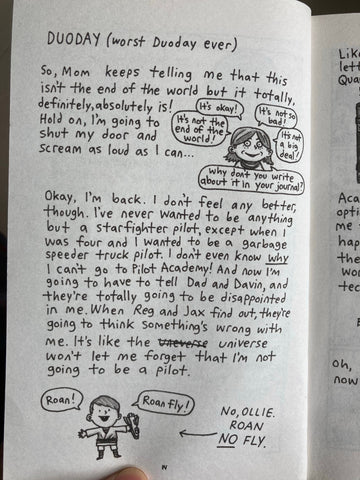 DUODAY (worst Duoday ever)
So, Mom keeps telling me that this
isn't the end of the world but it totally,
definitely, absolutely is!
Hold on, I'm going to
shut my door and
scream as loud as I can...
It's okay!
It's not so
bad!
It's not
the end
of the
world!
It's not
a big
deal!
Why don't you write
about it in your journal?
Okay, I'm back. I don't feel any better,
though. I've never wanted to be anything
but a starfighter pilot, except when I
was four and I wanted to be a garbage
speeder truck pilot. I don't even know why
I can't go to Pilot Academy! And now I'm
going to have to tell Dad and Davin, and
they're totally going to be disappointed
in me. When Reg and Jax find out, they're
going to think something's wrong with
me. It's like the uneverse universe
won't let me forget that I'm not
going to be a pilot.
Roan!
Roan fly!
NO, OLLIE.
ROAN
NO FLY.
Like
lett
Qua
Aca
opti
me
hap
the
wo
tec
Oh,
now